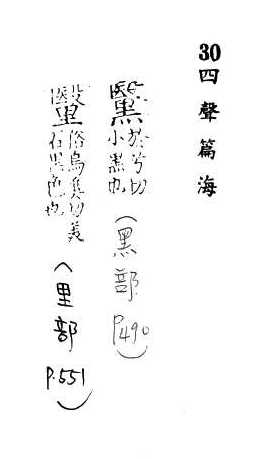 30 四聲篇海
黳 於兮切小黑也 (黑部 P490)
俗烏奚切美石黑色也 (里部 P.551)